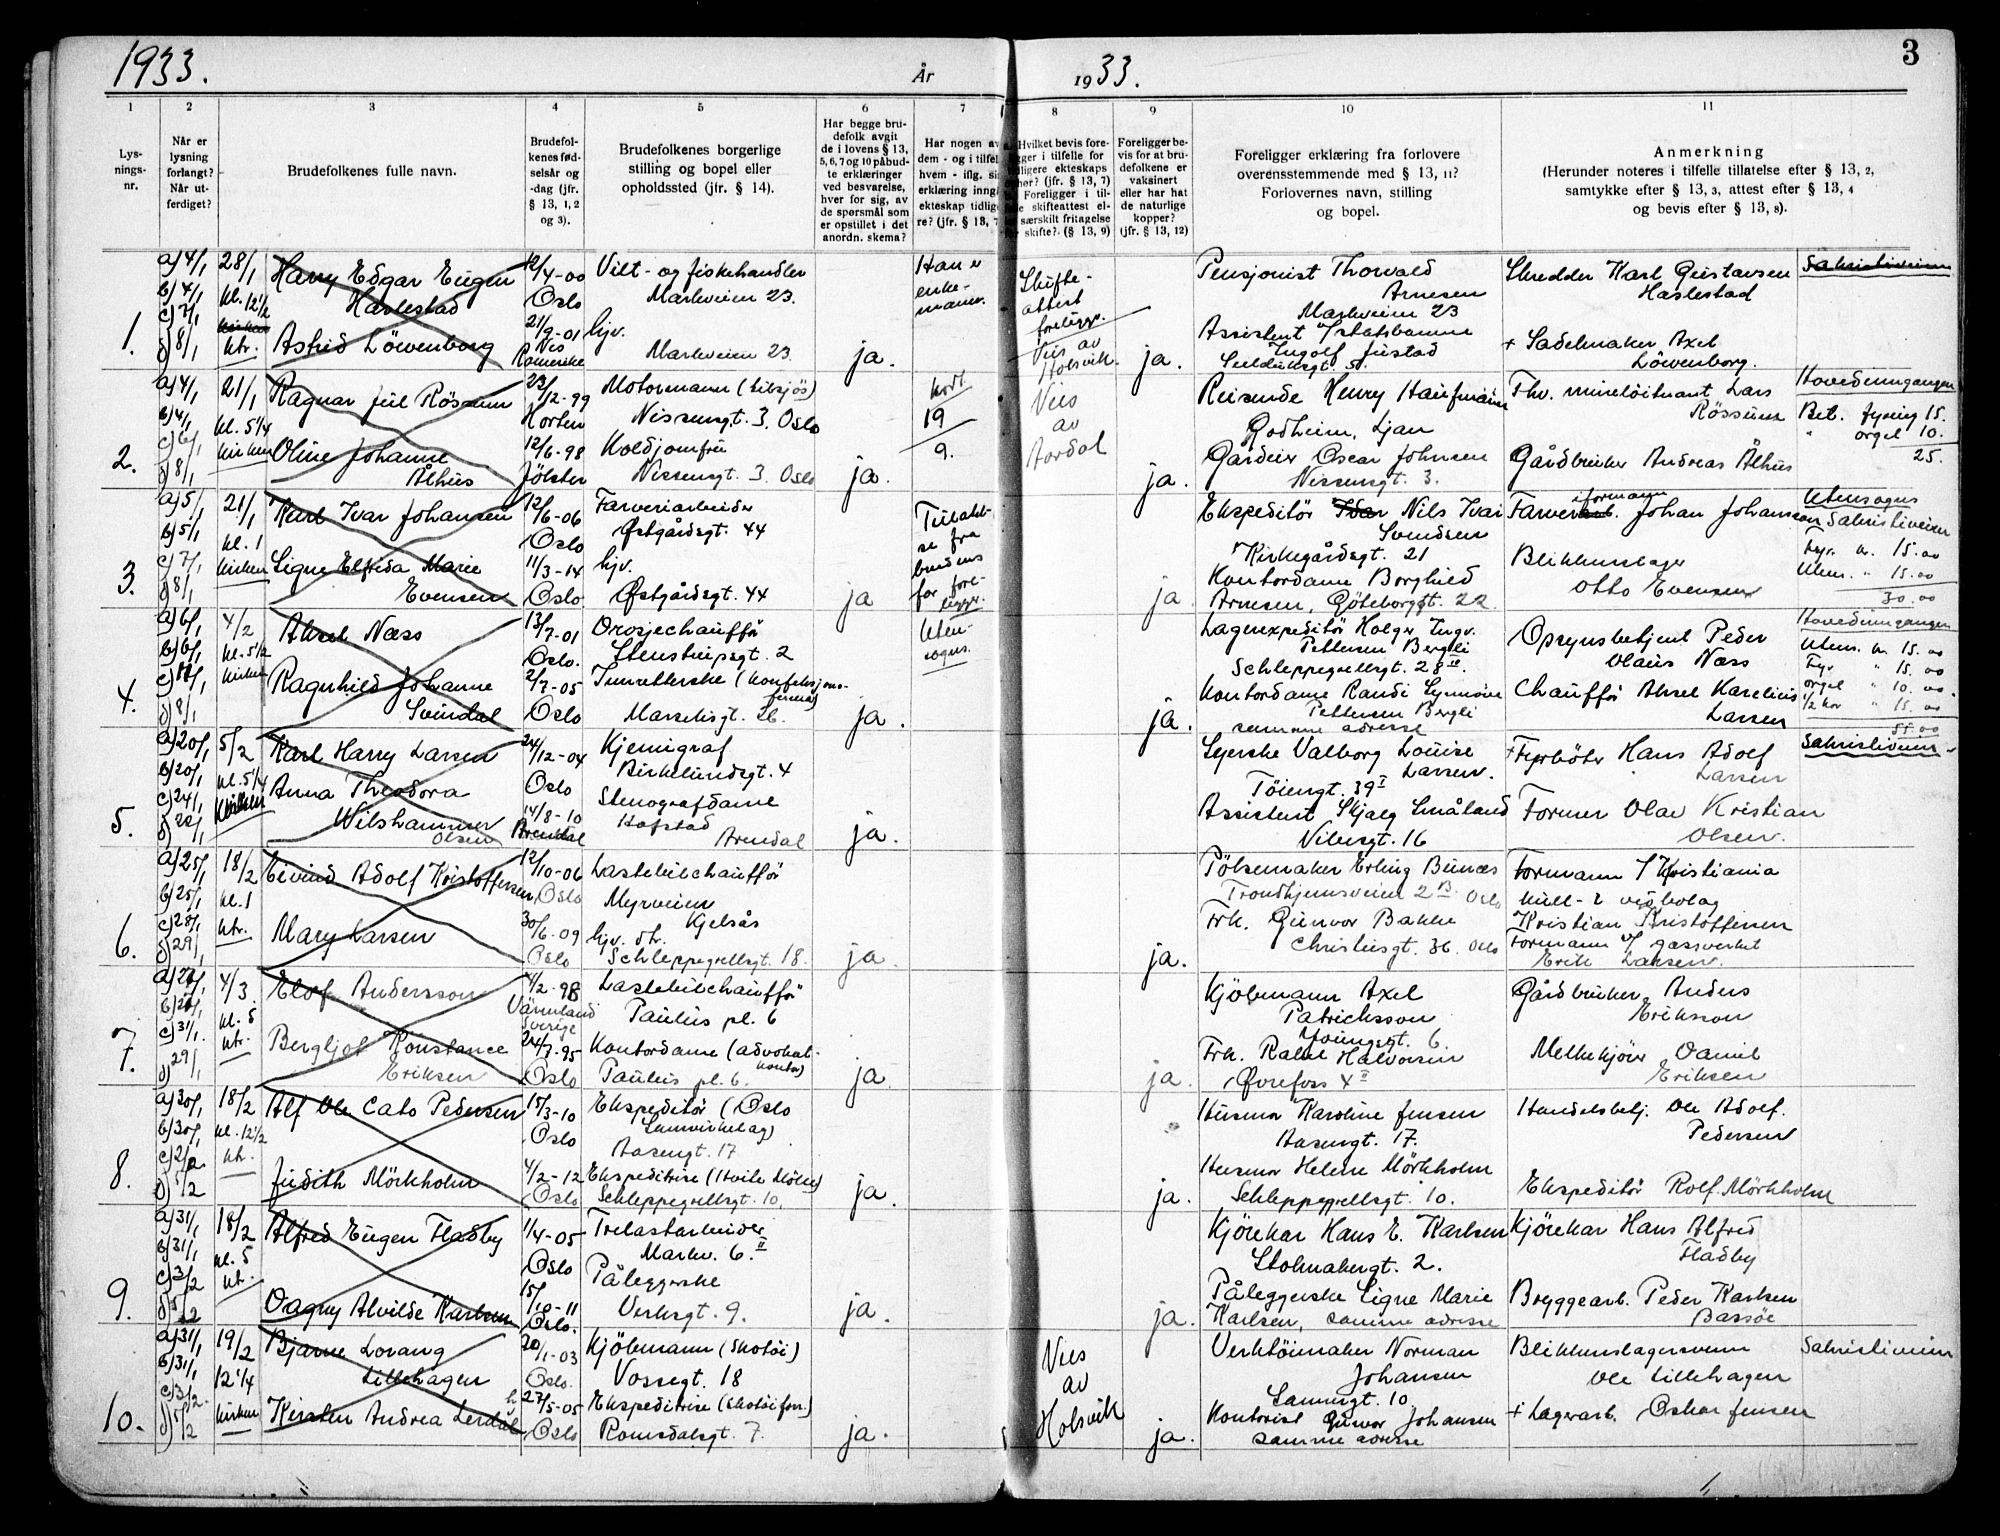 1933.
År
1933.
3
1
2
3
4
5
6
7
8
9
10
11
Lys-
nings-
nr.
Når er
lysning
forlangt?
Når ut-
ferdiget?
Brudefolkenes fulle navn.
Brudefol-
kenes fød-
selsår og
-dag (jfr.
§ 13, 1, 2
og 3).
Brudefolkenes borgerlige
stilling og bopel eller
opholdssted (jfr. § 14).
Har begge bru-
defolk avgit
de i lovens § 13,
5, 6, 7 og 10 påbud-
te erklæringer
ved besvarelse,
hver for sig, av
de spørsmål som
er opstillet i det
anordn. skema?
Har nogen av
dem - og i tilfel
hvem - iflg. si
erklæring inng
ekteskap tidlig
re? (jfr. § 13, 7
Hvilket bevis fore-
gger i tilfelle for
dligere ekteskaps
hør? (jfr. § 13, 7)
Foreligger i til-
le skifteattest el-
særskilt fritagelse
skifte?. (§ 13, 9)
Foreligger be-
vis for at bru-
defolkene er
vaksinert
eller har hat
de naturlige
kopper?
(jfr. § 13, 12)
Foreligger erklæring fra forlovere
overensstemmende med § 13, 11?
Forlovernes navn, stilling
og bopel.
Anmerkning
(Herunder noteres i tilfelle tillatelse efter § 13, 2,
samtykke efter § 13, 3, attest efter § 13, 4
og bevis efter § 13, 8).
1.
a) 4/1
b) 4/1
c) 7/1
d) 8/1
28/1
kl. 12 1/2
ktr.
Harry Edgar Eugen
Haslestad
Astrid Löwenborg
12/4-00
Oslo
21/9-01
Nes
Romerike
Vilt- og fiskehandler
Markveien 23.
hjv.
Markveien 23.
ja.
Han er
enke-
mann.
Skifte-
attest
foreligger.
Vies av
Holsvik.
ja.
Pensjonist Thorvald
Arnesen
Markveien 23
Assistent v/statsbanene
Ingolf Justad
Seilduksgt 5.
Skredder Karl Gustavsen
Haslestad
+ Sadelmaker Axel
Löwenborg.
Sakristiveien
2.
a) 4/1
b) 4/1
c) 6/1
d) 8/1
21/1
kl. 5 1/4
kirken
Ragnar Juul Rössum
Oline Johanne
Ålhus
23/12-99
Horten
12/6-98
Jölster
Motormann (tilsjös)
Nissensgt. 3. Oslo
Koldjomfru
Nissensgt. 3. Oslo
ja.
19
9.
Vies
av
Aardal
ja.
Reisende Henry Haufmann
Godheim, Ljan
Gårdeier Oscar Johnsen
Nissensgt. 3.
Fhv. mineløitnant Lars
Rössum
Gårdbruker Andreas Ålhus
Hovedinngangen
Bet. fyring 15.
" orgel 10.
25.
3.
a) 5/1
b) 5/1
c) 7/1
d) 8/1
21/1
kl. 1
kirken
Karl Ivar Johansen
Signe Elfrida Marie
Evensen
12/6-06
Oslo
11/3-14
Oslo
Farveriarbeider
Østgårdsgt. 44
hjv.
Østgårdsgt. 44
ja
Tillatel-
se fra
brudens
far fore-
ligger.
ja.
Ekspeditör Nils Ivar
Svendsen
Kirkegårdsgt. 21
Kontordame Borghild
Arnesen, Göteborggt. 22.
formann
Farveriarb. Johan Johansson
Blikkenslager
Otto Evensen
Utensogns
Sakristiveien
Fyr. kr. 15.00
Utens. " 15.00
30.00
4.
a) 6/1
b) 6/1
d) 8/1
4/2
kl. 5 1/2
kirken
Aksel Næss
Ragnhild Johanne
Svindal
13/7-01
Oslo.
2/7-05
Oslo
Drosjechauffør
Stenstrupsgt. 2
Tilretterske (konfeksjons-
firma)
Marselisgt. 26.
ja.
Uten-
sogns.
ja.
Lagerexpeditör Holger Ingv.
Pettersen Bergli
Schleppegrellsgt. 28 II
Kontordame Randi Synnöve
Pettersen Bergli
samme adresse
Opsynsbetjent Peder
Olaus Næss
Chauffør Aksel Karelius
Larsen
Hovedinngangen
Utens. kr. 15.00
Fyr " 15.00
orgel " 10.00
1/2 kor " 15.00
55.00
5.
a) 20/1
b) 20/1
c) 24/1
d) 22/1
5/2
kl. 5 1/4
Kirken
Karl Harry Larsen
Anna Theodora
Wilshammer
Olsen
24/12-04
Oslo
14/8-10
Arendal
Kjemigraf
Birkelundsgt. 4
Stenografdame
Hofstad
Arendal
ja.
Syerske Valborg Louise
Larsen.
Töiengt. 39 I
Assistent Skjalg Småland
Nilsensgt. 16
+ Fyrböter Hans Adolf
Larsen
Former Olav Kristian
Olsen.
Sakristiveien
6.
a) 25/1
b) 25/1
c) 28/1
d) 29/1
18/2
kl. 1
ktr.
Eivind Adolf Kristoffersen
Mary Larsen
12/10-06
Oslo
30/6-09
Oslo
Lastebilchauffør
Myrveien
Kjelsås
hjv. dtr.
Schleppegrellsgt. 18.
ja.
ja.
Pölsemaker Erling Bunæs
Trondhjemsveien 2 B. Oslo
Frk. Gunvor Bakke
Christiesgt. 36. Oslo
Formann v/Kristiania
kull- & vedbolag
Kristian Kristoffersen
Formann v/ gassverket
Erik Larsen.
7.
c) 31/1.
d) 29/1
4/3.
kl. 5
ktr.
Elof Andersson
Bergljot Konstance
Eriksen
4/2-98
Värmland
Sverige
24/7-95
Oslo
Lastebilchauffør
Paulus pl. 6
Kontordame (advokat-
kontor)
Paulus pl. 6.
ja.
ja.
Kjöbmann Axel
Patricksson
Youngsgt. 6.
Frk. Rakel Halvorsen
Øvrefoss 4 II
Gårdbruker Anders
Eriksson
Melkekjörer Daniel
Eriksen
8.
a) 30/1
b) 30/1
c) 2/2
d) 5/2
18/2
kl. 12 1/2
ktr.
Alf Ole Cato Pedersen
Judith Mörkholm
15/3-10
Oslo
4/2-12
Oslo
Ekspeditör (Oslo
Samvirkelag)
Aasengt. 17
Ekspeditrise (Hvite Mölle)
Schleppegrellsgt. 10.
ja.
ja.
Husmor Karoline Jensen
Aasengt. 17.
Husmor Helene Mörkholm
Schleppegrellsgt. 10.
Handelsbetj. Ole Adolf.
Pedersen
Ekspeditör Rolf Mörkholm
9.
a) 31/1
b) 31/1
c) 3/2
d) 5/2
18/2
kl. 5
kt.
Alfred Eugen Fladby
Dagny Alvilde Karlsen
1/4-05
Oslo
15/10-11
Oslo.
Trelastarbeider
Markv. 6. II
Påleggerske
Verksgt. 9.
ja.
ja.
Kjörekar Hans E. Karlsen
Stolmakergt. 2.
Påleggerske Signe Marie
Karlsen, samme adresse
Kjörekar Hans Alfred
Fladby
Bryggearb. Peder Karlsen
Bassøe
10.
a) 31/1
b) 31/1
c) 3/2.
d) 5/2
19/2
12 1/4
kirken
Bjarne Lorang
Lillehagen
Kirsten Andrea Lerdal
20/1-03
Oslo.
27/5-05
Oslo
Kjöbmann (Skotöi)
Vossegt. 18
Ekspeditrise (skotöiforr.)
Romsdalsgt. 7.
ja.
Vies
av
Holsvik
ja.
Verktöimaker Norman
Johansen
Sannergt. 10.
Kontorist Gunvor Johansen
samme adresse
Blikkenslagersvenn
Ole Lillehagen
+ Lagerarb. Oskar Jensen
Sakristiveien